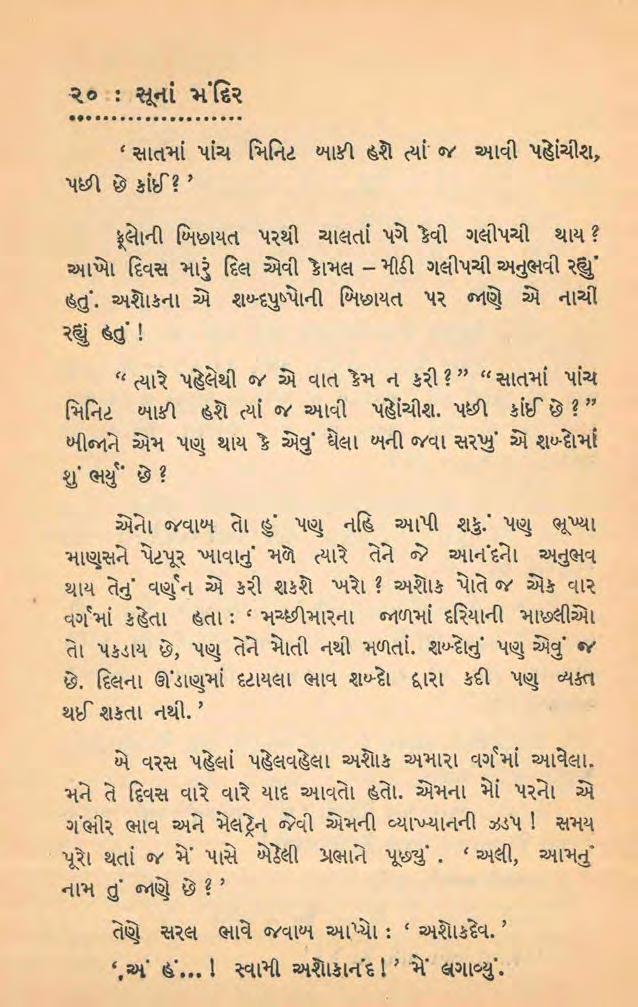 ૨૦ : સૂનાં મંદિર
‘ સાતમાં પાંચ મિનિટ બાકી હશે ત્યાં જ આવી પહોંચીશ,
પછી છે કાંઈ ? ’
ફૂલોની બિછાયત પરથી ચાલતાં પગે કેવી ગલીપચી થાય ?
આખો દિવસ મારું દિલ એવી કોમલ – મીઠી ગલીપચી અનુભવી રહ્યું
હતું. અશોકના એ શબ્દપુષ્પોની બિછાયત પર જાણે એ નાચી
રહ્યું હતું !
“ ત્યારે પહેલેથી જ એ વાત કેમ ન કરી ? ” “ સાતમાં પાંચ
મિનિટ બાકી હશે ત્યાં જ આવી પહોંચીશ. પછી કાંઈ છે ? ”
બીજાને એમ પણ થાય કે એવું ઘેલા બની જવા સરખું એ શબ્દોમાં
શું ભર્યું છે ?
એનો જવાબ તો હું પણ નહિ આપી શકું. પણ ભૂખ્યા
માણસને પેટપૂર ખાવાનું મળે ત્યારે તેને જે આનંદનો અનુભવ
થાય તેનું વર્ણન એ કરી શકશે ખરો ? અશોક પોતે જ એક વાર
વર્ગમાં કહેતા હતા : ‘ મચ્છીમારના જાળમાં દરિયાની માછલીઓ
તો પકડાય છે, પણ તેને મોતી નથી મળતાં. શબ્દોનું પણ એવું જ
છે. દિલના ઊંડાણમાં દટાયલા ભાવ શબ્દો દ્વારા કદી પણ વ્યક્ત
થઈ શકતા નથી. ’
બે વરસ પહેલાં પહેલવહેલા અશોક અમારા વર્ગમાં આવેલા.
મને તે દિવસ વારે વારે યાદ આવતો હતો. એમના મોં પરનો એ
ગંભીર ભાવ અને મેલટ્રેન જેવી એમની વ્યાખ્યાનની ઝડપ ! સમય
પૂરો થતાં જ મેં પાસે બેઠેલી પ્રભાને પૂછ્યું . ‘ અલી, આમનું
નામ તું જાણે છે ? ’
તેણે સરલ ભાવે જવાબ આપ્યો : ‘ અશોકદેવ. ’
‘ અં હં... ! સ્વામી અશોકાનંદ ! ’ મેં લગાવ્યું.